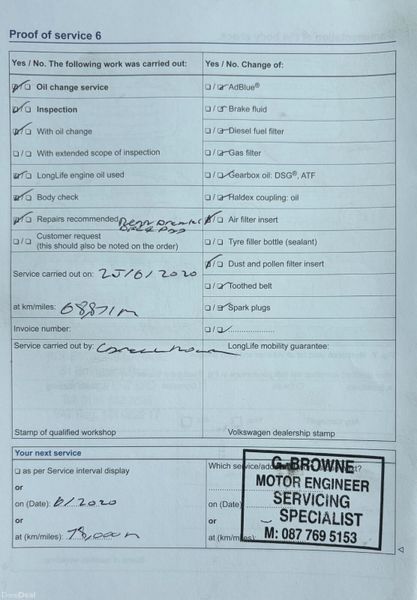 Proof of service 6
Yes / No. The following work was carried out: Yes / No. Change of:
Oil change service / AdBlue®
Inspection / Brake fluid
With oil change / Diesel fuel filter
/ With extended scope of inspection / Gas filter
LongLife engine oil used / Gearbox oil: DSG®, ATF
Body check / Haldex coupling: oil
Repairs recommended Air filter insert
/ Customer request / Tyre filler bottle (sealant)
(this should also be noted on the order)
Dust and pollen filter insert
Service carried out on: 25/6/2020 / Toothed belt
at km/miles: 68,871m / Spark plugs
Invoice number: /
Service carried out by: LongLife mobility guarantee:
Stamp of qualified workshop Volkswagen dealership stamp
Your next service
as per Service interval display
or
on (Date): 6/2020 on (Date)
or or
at (km/miles): 78,000m at (km/miles):
G.BROWNE
MOTOR ENGINEER
SERVICING
SPECIALIST
M: 087 769 5153
DoneDeal